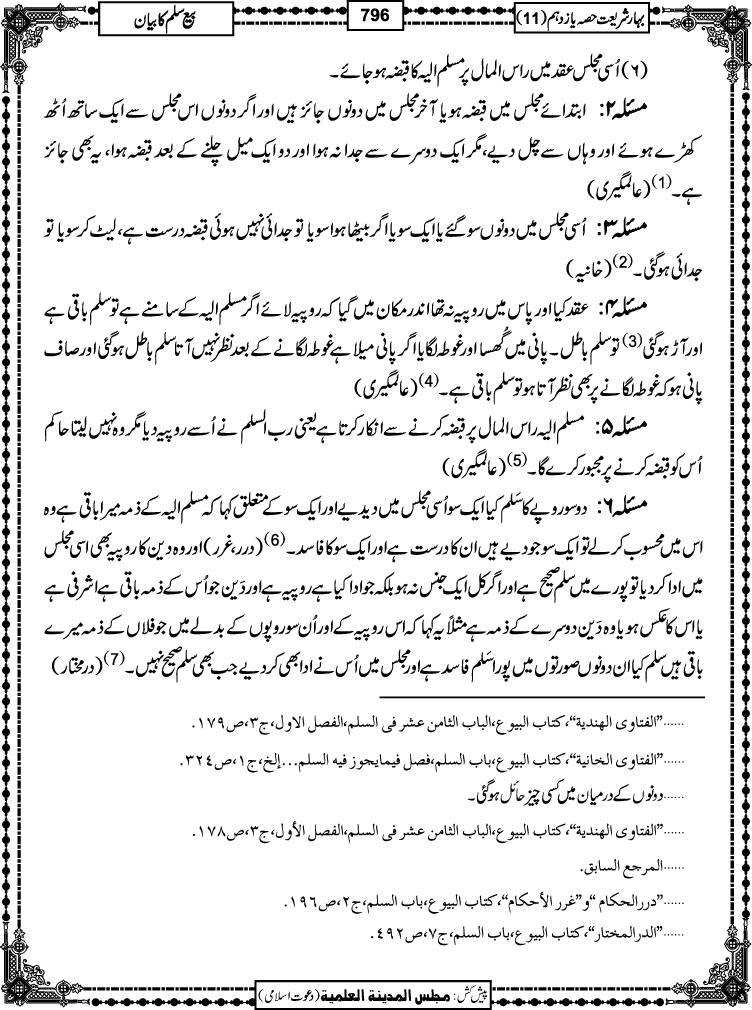 بہارِشریعت حصہ یازدہم (11)
796
بیع سلم کا بیان
(۶) اُسی مجلس عقد میں راس المال پر مسلم الیہ کا قبضہ ہوجائے۔
مسئلہ ۲: ابتدائے مجلس میں قبضہ ہو یا آخر مجلس میں دونوں جائز ہیں اور اگر دونوں اس مجلس سے ایک ساتھ اُٹھ
کھڑے ہوئے اور وہاں سے چل دیے، مگر ایک دوسرے سے جدا نہ ہوا اور دو ایک میل چلنے کے بعد قبضہ ہوا، یہ بھی جائز
ہے۔(1) (عالمگیری)
مسئلہ ۳: اُسی مجلس میں دونوں سو گئے یا ایک سویا اگر بیٹھا ہوا سویا تو جدائی نہیں ہوئی قبضہ درست ہے، لیٹ کر سویا تو
جدائی ہوگئی۔(2) (خانیہ)
مسئلہ ۴: عقد کیا اور پاس میں روپیہ نہ تھا اندر مکان میں گیا کہ روپیہ لائے اگر مسلم الیہ کے سامنے ہے تو سلم باقی ہے
اور آڑ ہوگئی(3) تو سلم باطل۔ پانی میں گُھسا اور غوطہ لگایا اگر پانی میلا ہے غوطہ لگانے کے بعد نظر نہیں آتا سلم باطل ہوگئی اور صاف
پانی ہو کہ غوطہ لگانے پر بھی نظر آتا ہو تو سلم باقی ہے۔(4) (عالمگیری)
مسئلہ ۵: مسلم الیہ راس المال پر قبضہ کرنے سے انکار کرتا ہے یعنی رب السلم نے اُسے روپیہ دیا مگر وہ نہیں لیتا حاکم
اُس کو قبضہ کرنے پر مجبور کرے گا۔(5) (عالمگیری)
مسئلہ ۶: دو سو روپے کا سَلم کیا ایک سو اُسی مجلس میں دیدیے اور ایک سو کے متعلق کہا کہ مسلم الیہ کے ذمہ میرا باقی ہے وہ
اس میں محسوب کرلے تو ایک سو جو دیے ہیں ان کا درست ہے اور ایک سو کا فاسد۔(6) (درر،غرر) اور وہ دین کا روپیہ بھی اسی مجلس
میں ادا کردیا تو پورے میں سلم صحیح ہے اور اگر کل ایک جنس نہ ہو بلکہ جو ادا کیا ہے روپیہ ہے اور دَین جو اُس کے ذمہ باقی ہے اشرفی ہے
یا اس کا عکس ہو یا وہ دَین دوسرے کے ذمہ ہے مثلاً یہ کہا کہ اس روپیہ کے اور اُن سو روپوں کے بدلے میں جو فلاں کے ذمہ میرے
باقی ہیں سلم کیا ان دونوں صورتوں میں پورا سَلم فاسد ہے اور مجلس میں اُس نے ادا بھی کردیے جب بھی سلم صحیح نہیں۔(7) (درمختار)
......"الفتاوی الھندیة"،کتاب البیوع،الباب الثامن عشر فی السلم،الفصل الاول،ج۳،ص۱۷۹.
......"الفتاوی الخانیة"، کتاب البیوع،باب السلم،فصل فیمایجوز فیه السلم...إلخ،ج۱،ص۳۲٤.
......دونوں کے درمیان میں کسی چیز حائل ہوگئی۔
......"الفتاوی الھندیة"، کتاب البیوع،الباب الثامن عشر فی السلم،الفصل الأول،ج۳،ص۱۷۸.
......المرجع السابق.
......"دررالحکام "و"غرر الأحکام"، کتاب البیوع،باب السلم،ج۲،ص۱۹٦.
......"الدرالمختار"، کتاب البیوع،باب السلم،ج۷،ص٤۹۲.
پیش کش: مجلس المدینة العلمیة (دعوت اسلامی)